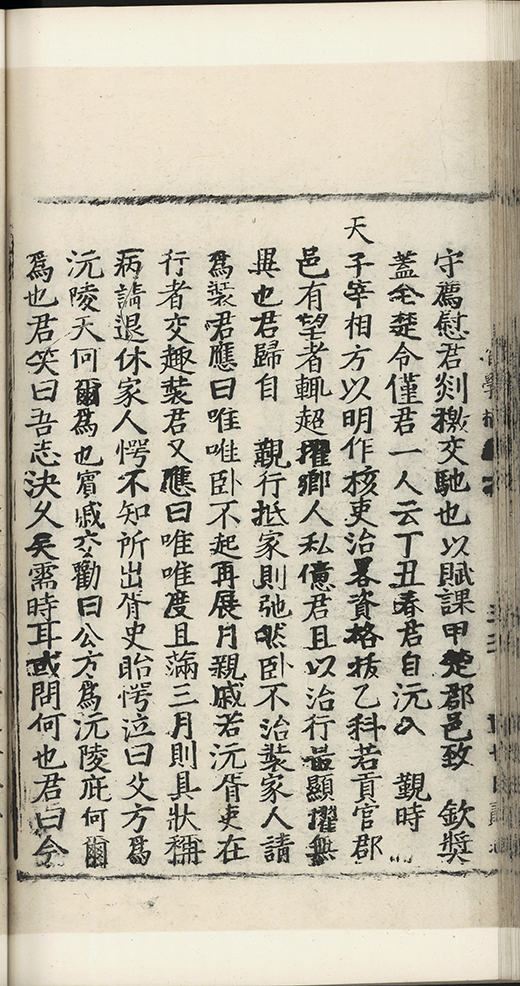 守薦慰君剡檄交馳也以賦課甲楚郡邑致　欽獎
蓋全楚令僅君一人云丁丑春君自沅入　覲時
天子宰相方以明作核吏治畧資格拔乙科若貢官郡
邑有望者輒超擢鄉人私億君且以治行最顯擢無
異也君歸自　覲行抵家則弛然卧不治裝家人請
爲裝君應曰唯唯卧不起再展月親戚若沅胥吏在
行者交趣裝君又應曰唯唯度且滿三月則具狀稱
病請退休家人愕不知所出胥史眙愕泣曰父方爲
沅陵天何爾爲也賔戚交勸曰公方爲沅陵庇何爾
爲也君笑曰吾志決久矣需時耳或問何也君曰今